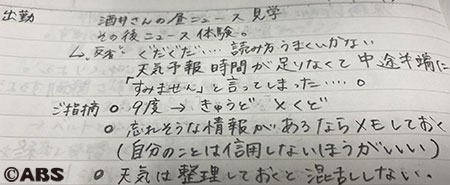 出勤 酒井さんの昼ニュース 見学
その後ニュース体験。
↳反省 ぐだぐだ…. 読み方うまくいかない
天気予報 時間が足りなくて中途半端に
「すみません」と言ってしまった….。
ご指摘 ○ 9度 → きゅうど ×くど
○ 忘れそうな情報があるならメモしておく
(自分のことは信用しないほうがいい)
○ 天気は整理しておくと混乱しない。
©ABS